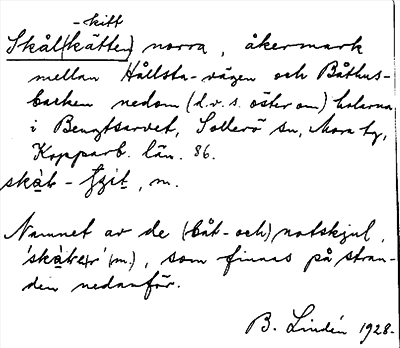 -kitt
Skål(kätten) norra, åkermark
mellan Hållsta-vägen och Båthus-
backen nedom (d.v.s. öster om) kolarna
i Bengtsarvet, Sollerö sn, Mora tg,
Kopparb. län. 86.
skàk - , m.
Namnet av de (båt- och) notskjul,
(m.), som finnas på stran-
den nedanför.
B. Lindén 1928.